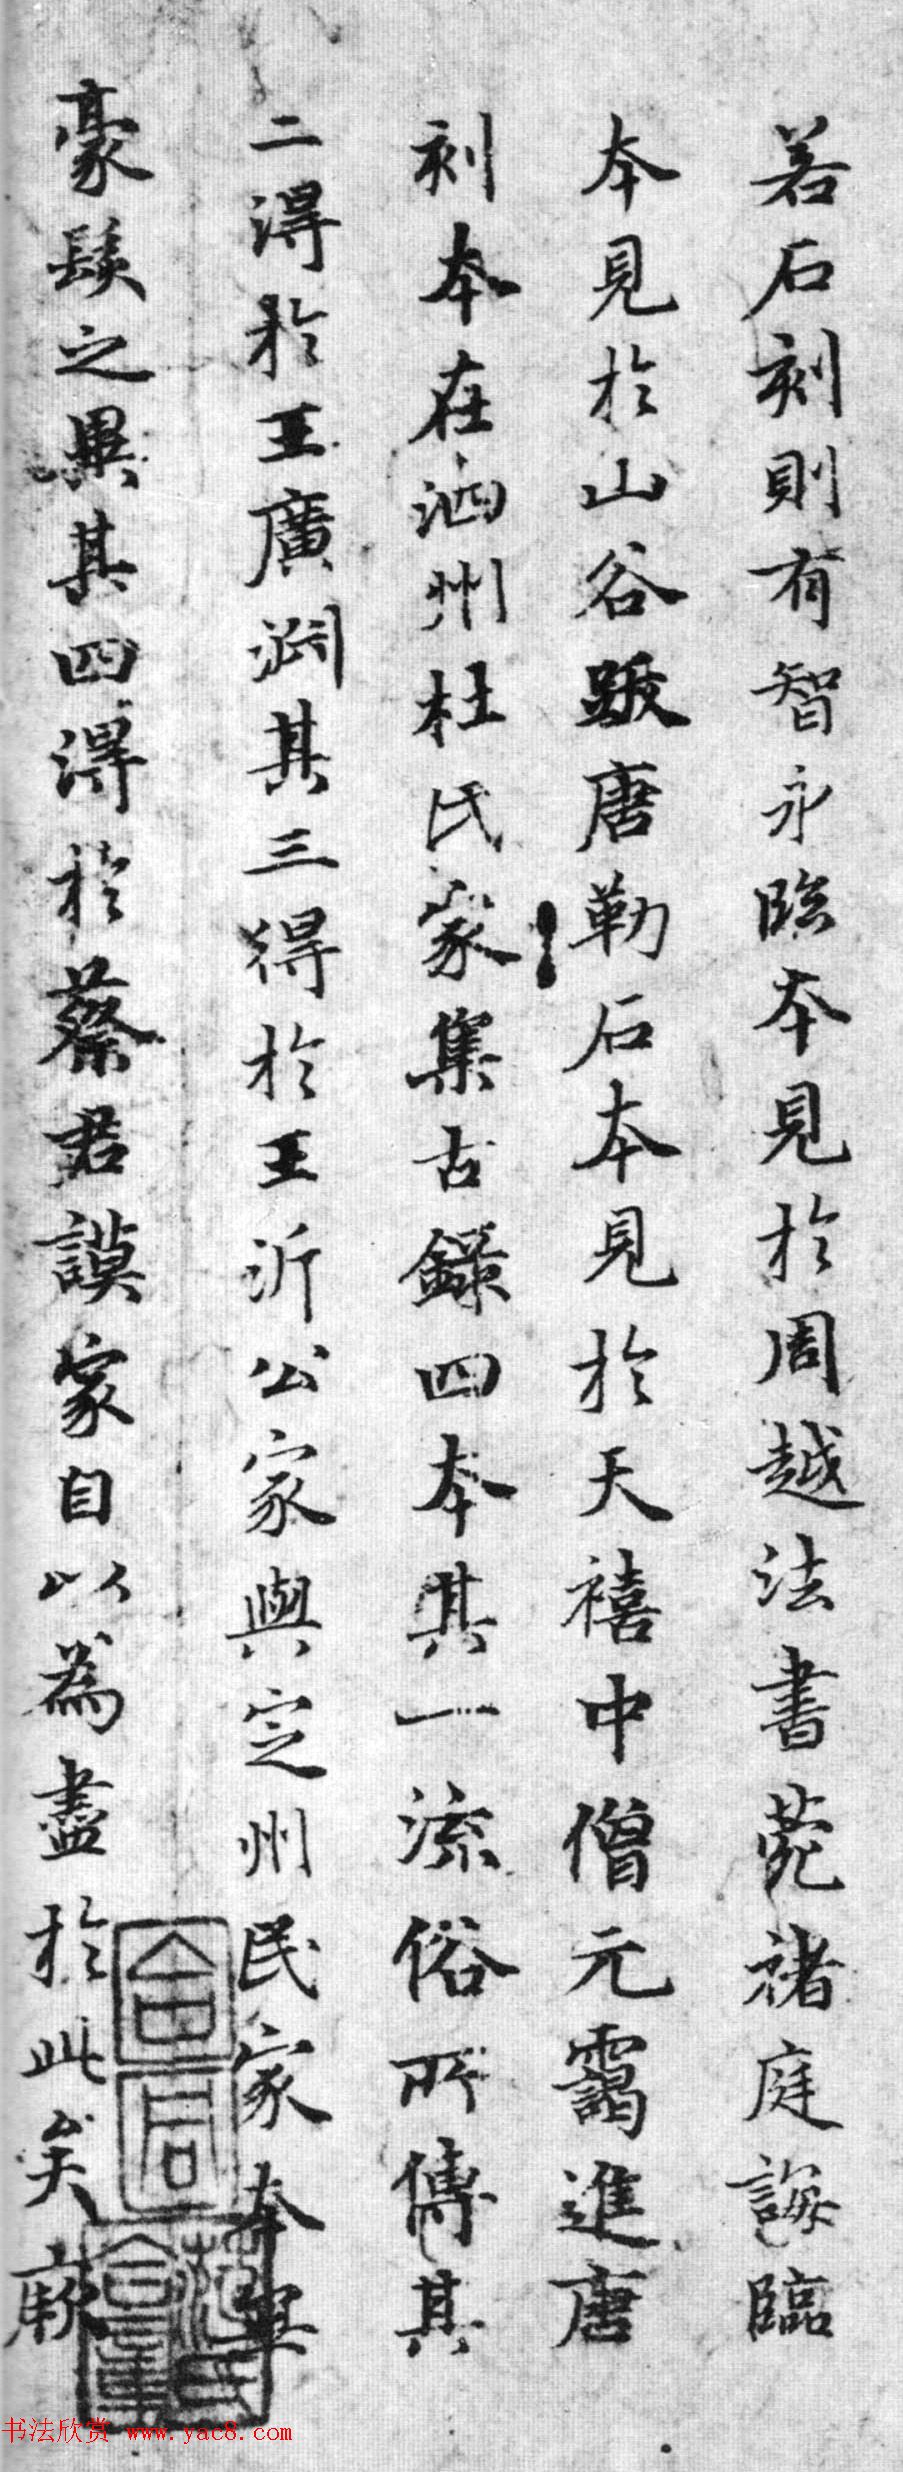 若石刻則有智永臨本見於周越法書菀褚庭誨臨
本見於山谷跋唐勒石本見於天禧中僧元靄進唐
刻本在泗州杜氏家集古錄四本其一流俗所傳其
二得於王廣淵其三得於王沂公家與定州民家本寔
豪髮之異其四得於蔡君謨家自以為盡於此矣厥
书法欣赏 www.yac8.com